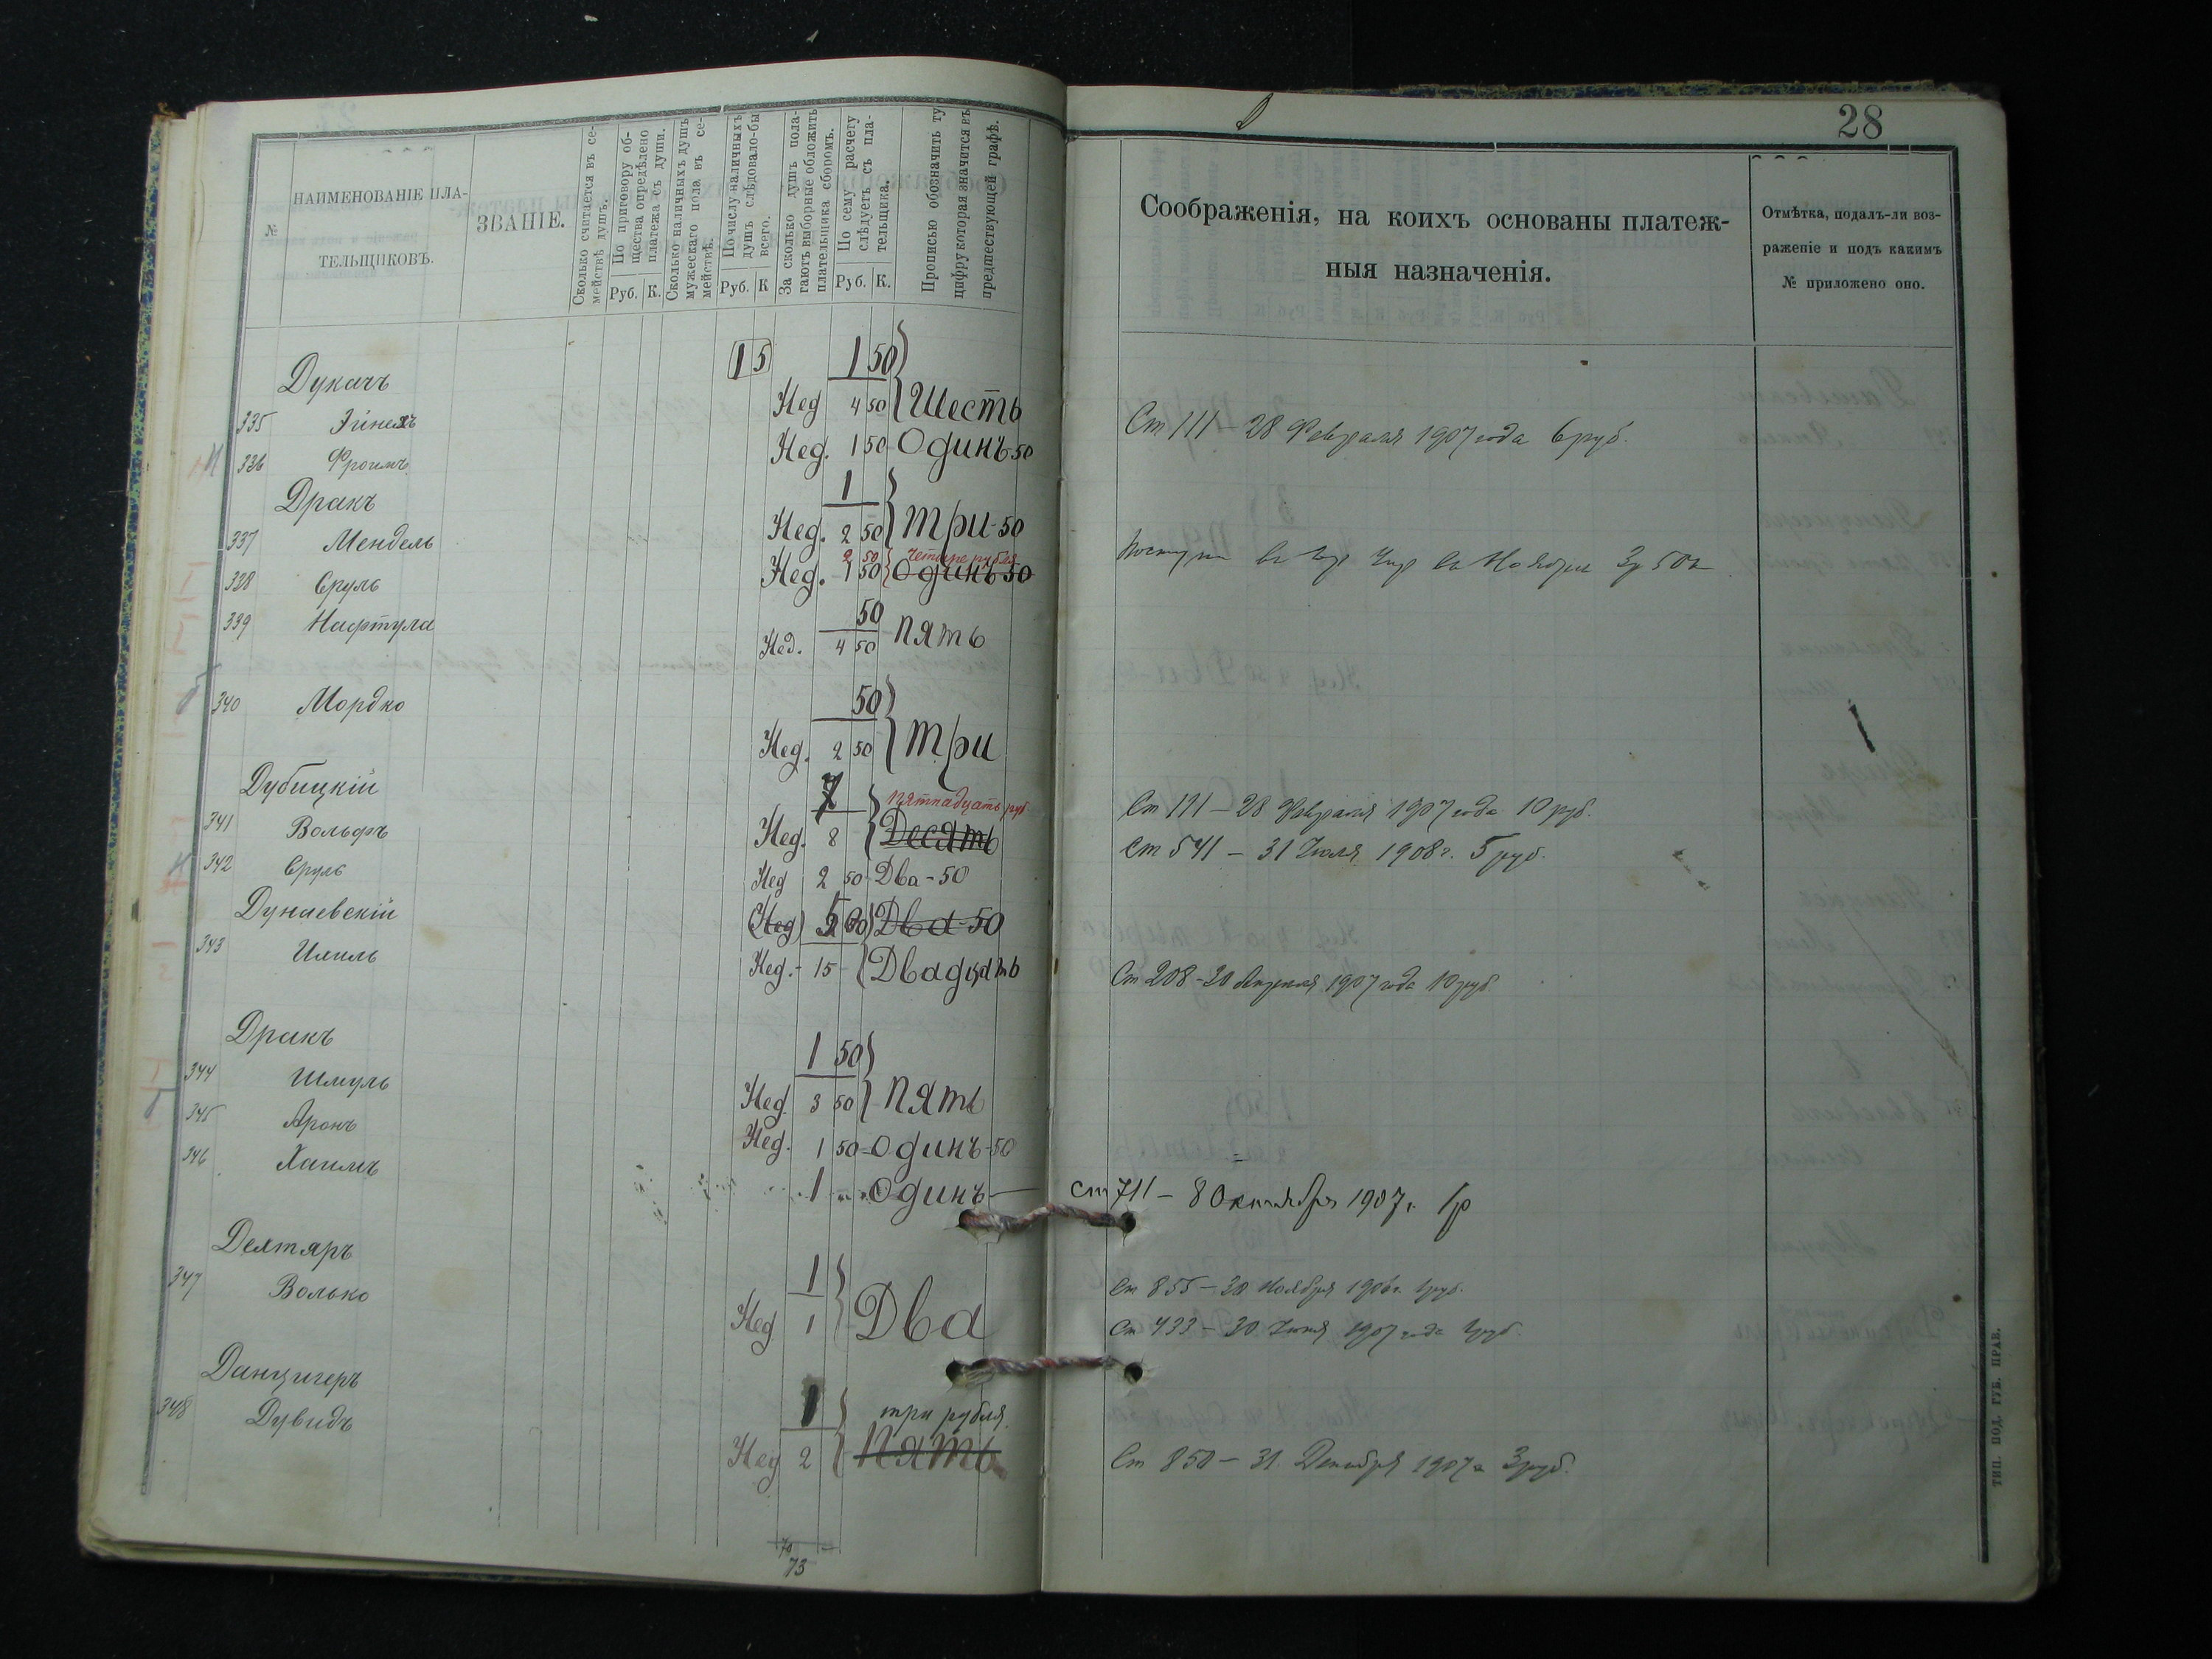 №
НАИМЕНОВАНІЕ ПЛА-
ТЕЛЬЩИКОВЪ.
ЗВАНІЕ.
Сколько считается въ се-
мействѣ душъ.
По приговору об-
щества опредѣлено
платежа съ души.
Руб. К.
Сколько наличныхъ душъ
мужескаго пола въ се-
мействѣ.
По числу наличныхъ
душъ слѣдовало-бы
всего.
Руб. К
За сколько душъ пола-
гаютъ выборные обложить
плательщика сборомъ.
По сему расчету
слѣдуетъ съ пла-
тельщика.
Руб. К.
Прописью обозначить ту
цифру которая значится въ
предшествующей графѣ.
15 1 50
Дукачъ
335 Нед 4 50 Шесть
336 Фроимъ Нед. 1 50 Одинъ 50
Дракъ 1
337 Мендель Нед. 2 50 Три-50
2 50 Четыре рубля
338 Сруль Нед. 1 50 Одинъ 50
50
339 Нафтула Нед. 4 50 Пять
50
340 Мордко Нед. 2 50 Три
Дубицкій 7 Пятнадцать руб
341 Вольфъ Нед. 8 Десять
342 Сруль Нед 2 50 Два-50
Дунаевскій (Нед) 5 Два-50
343 Нед.- 15 Двадцать
Дракъ 1 50
344 Шмуль Нед 3 50 Пять
345 Аронъ Нед. 1 50 Одинъ-50
346 Хаимъ 1 Одинъ
Дехтяръ 1
347 Волько Нед 1 Два
Данцигеръ 1 три рубля
348 Дувидъ Нед 2 Пять
70
73
Д
28
Соображенія, на коихъ основаны платеж-
ныя назначенія.
Отмѣтка, подалъ-ли воз-
раженіе и подъ какимъ
№ приложено оно.
Ст 111 - 28 Февраля 1907 года 6 руб.
въ Ноября 3р 50к
Ст 111 - 28 Февраля 1907 года 10 руб.
Ст 541 - 31 Июля 1908 г. 5 руб.
Ст 208 - 20 Апреля 1907 года 10 руб
ст 711 - 8 Октября 1907 г. 1р
Ст 855 - 30 Ноября 1906 г. 1 руб.
Ст 433 - 30 Июня 1907 года 1 руб.
Ст 850 - 31 Декабря 1907 г 3 руб.
ТИП. ПОД. ГУБ. ПРАВ.